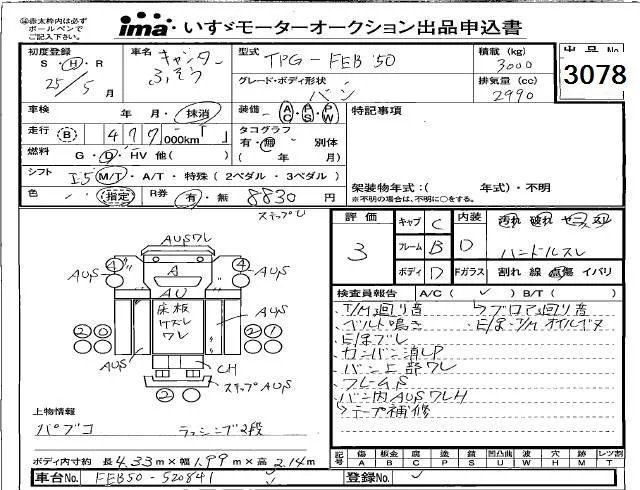 ㊟赤太枠内は必ず
ボールペンで
ご記入下さい。
ima いすゞモーターオークション出品申込書
初度登録
S・H・R
25/5 月
車名 キャンター
ふそう
型式 TPG-FEB50
グレード・ボディ形状
バン
積載 (kg)
3000
排気量 (cc)
2990
出品No.
3078
車検 年 月・抹消
走行 B 477 000km
燃料 G・D・HV 他( )
シフト I5 M/T・A/T・特殊(2ペダル・3ペダル)
色 指定 R券 有・無 8830 円
装備 AC PS PW
タコグラフ
有・無 別体
( 年 月)
特記事項
架装物年式:( 年式)・不明
※不明の場合は、不明に○をする。
ステップU
評価
3
キャブ C
フレーム B
ボディ D
内装 D
Fガラス
汚れ 破れ ヤニ スリ
ハンドルスレ
割れ 線 点傷 イバリ
検査員報告 A/C( ✓ ) B/T( )
T/M廻り音
ブロア廻り音
ベルト鳴き
E/g・T/Mオイルゲヌ
E/gブレ
カンバン消しP
バン上部ワレ
フレームS
バン内AUSワレH
テープ補修
AUSワレ
4
4
AUS
A
AU
床板
ケズレ
ワレ
AUS
2 0
2 1
AUS
CH
ステップAUS
2
上物情報
パブコ
ラッシング2段
ボディ内寸約 長4.33m×幅1.99m×高2.14m
記号
傷 板金 腐 塗 錆 凹凸曲 波 穴 跡 レンツ割
A B C P S U W H M T
車台No. FEB50-520841
登録No. ✓